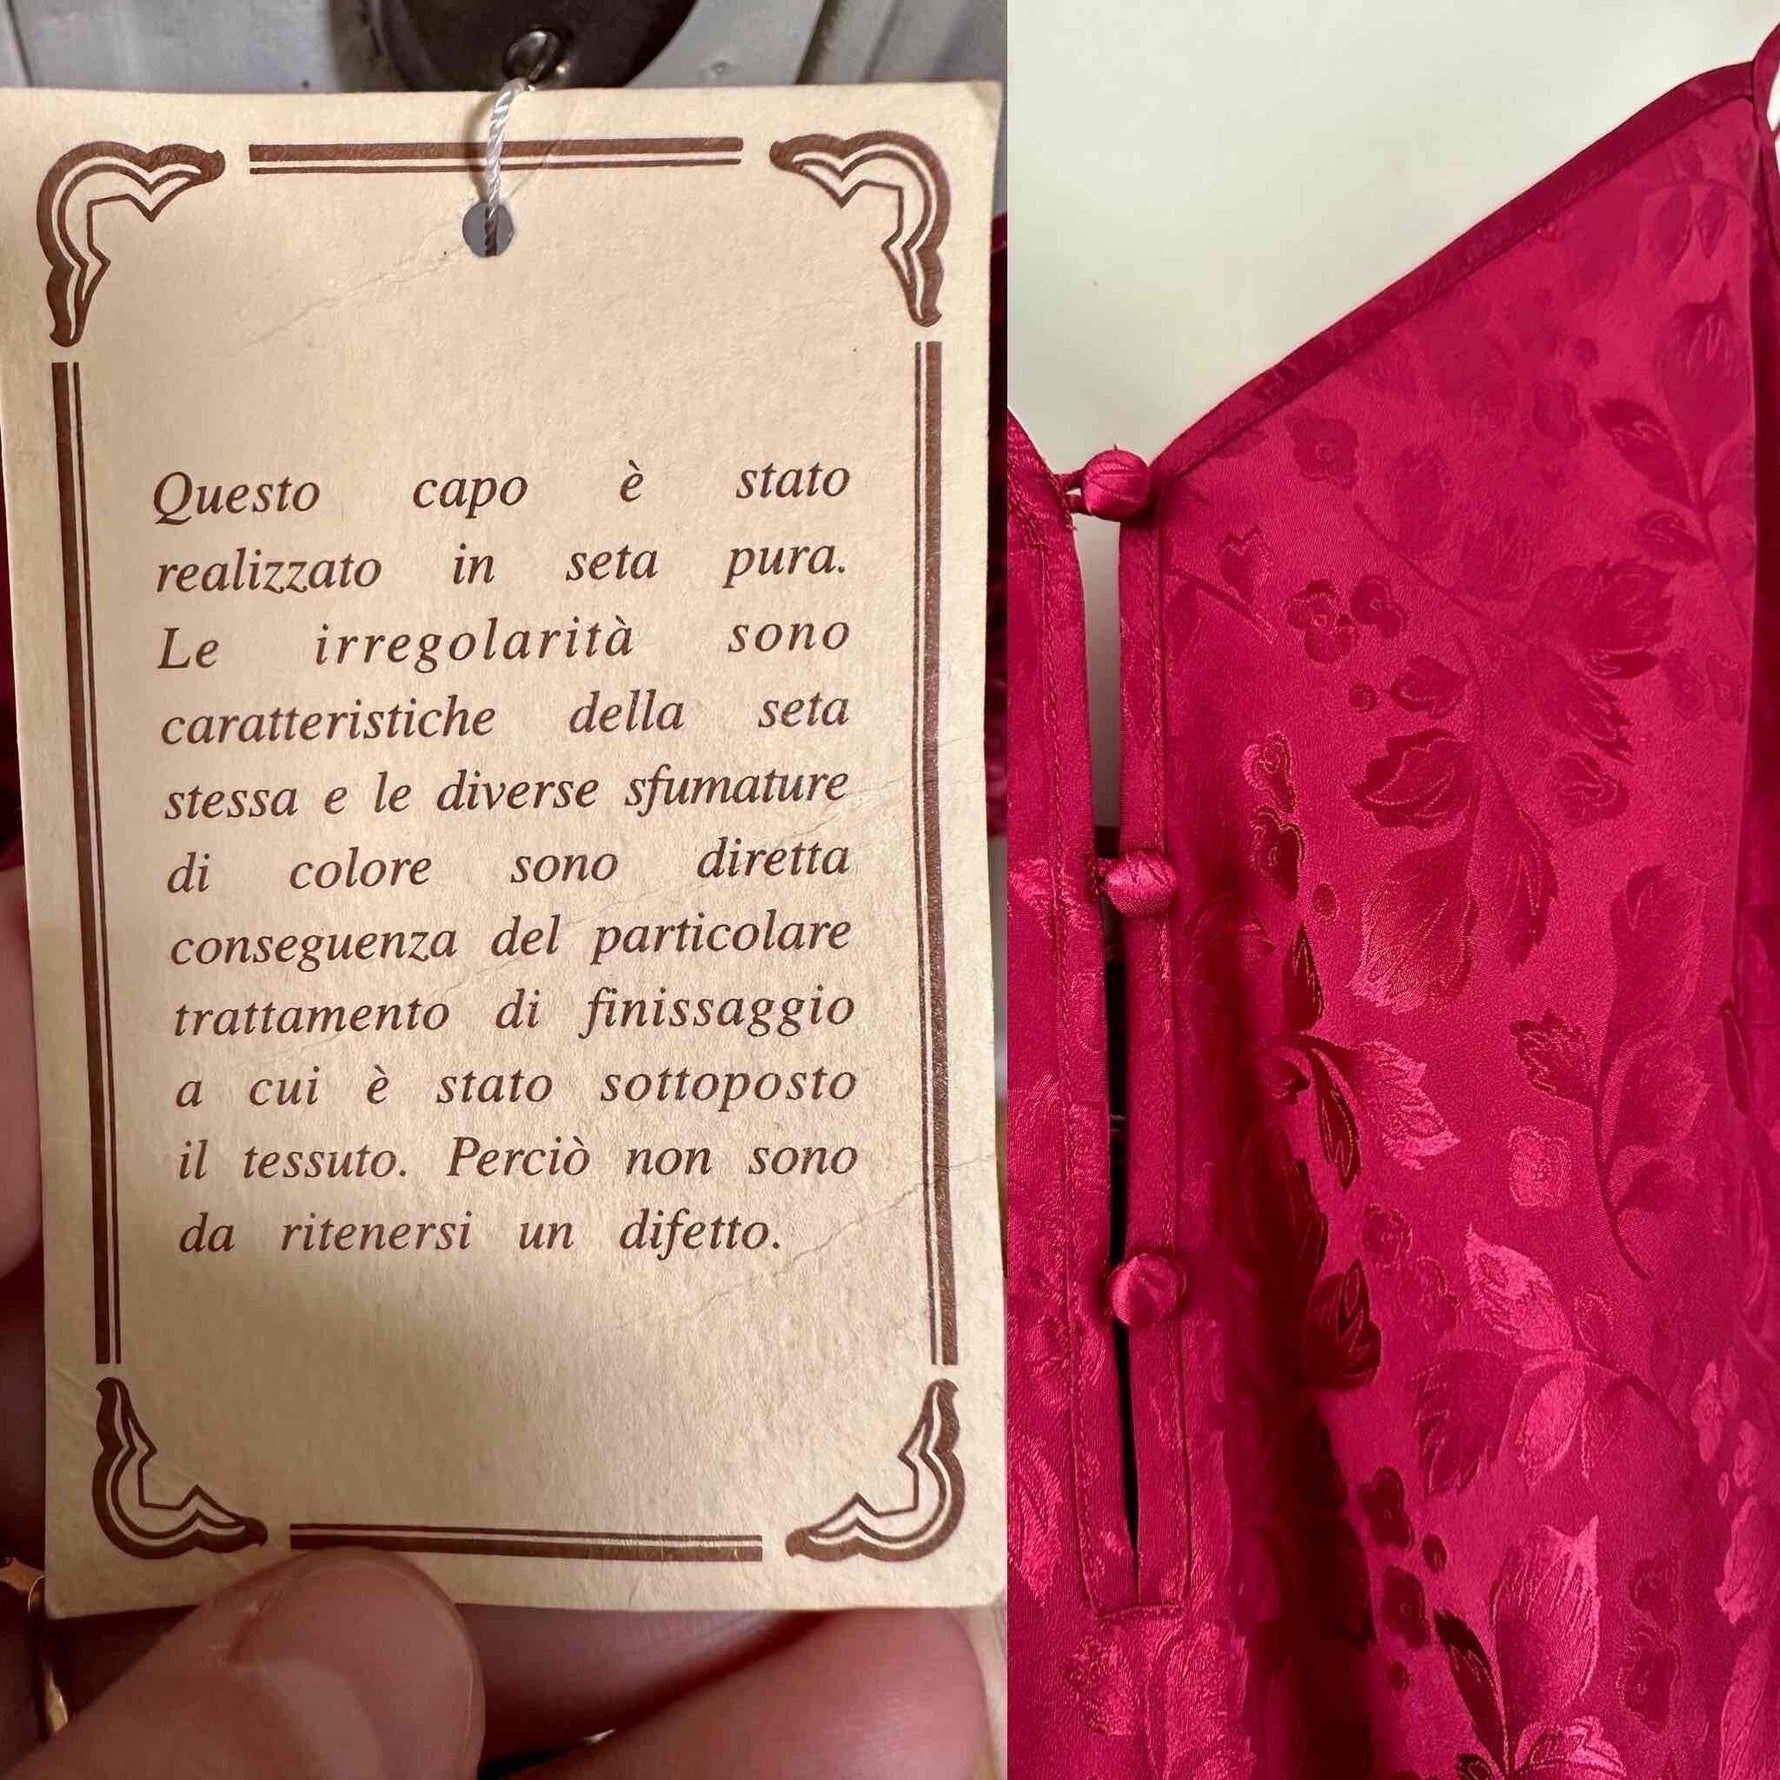 Questo capo è stato
realizzato in seta pura.
Le irregolarità sono
caratteristiche della seta
stessa e le diverse sfumature
di colore sono diretta
conseguenza del particolare
trattamento di finissaggio
a cui è stato sottoposto
il tessuto. Perciò non sono
da ritenersi un difetto.